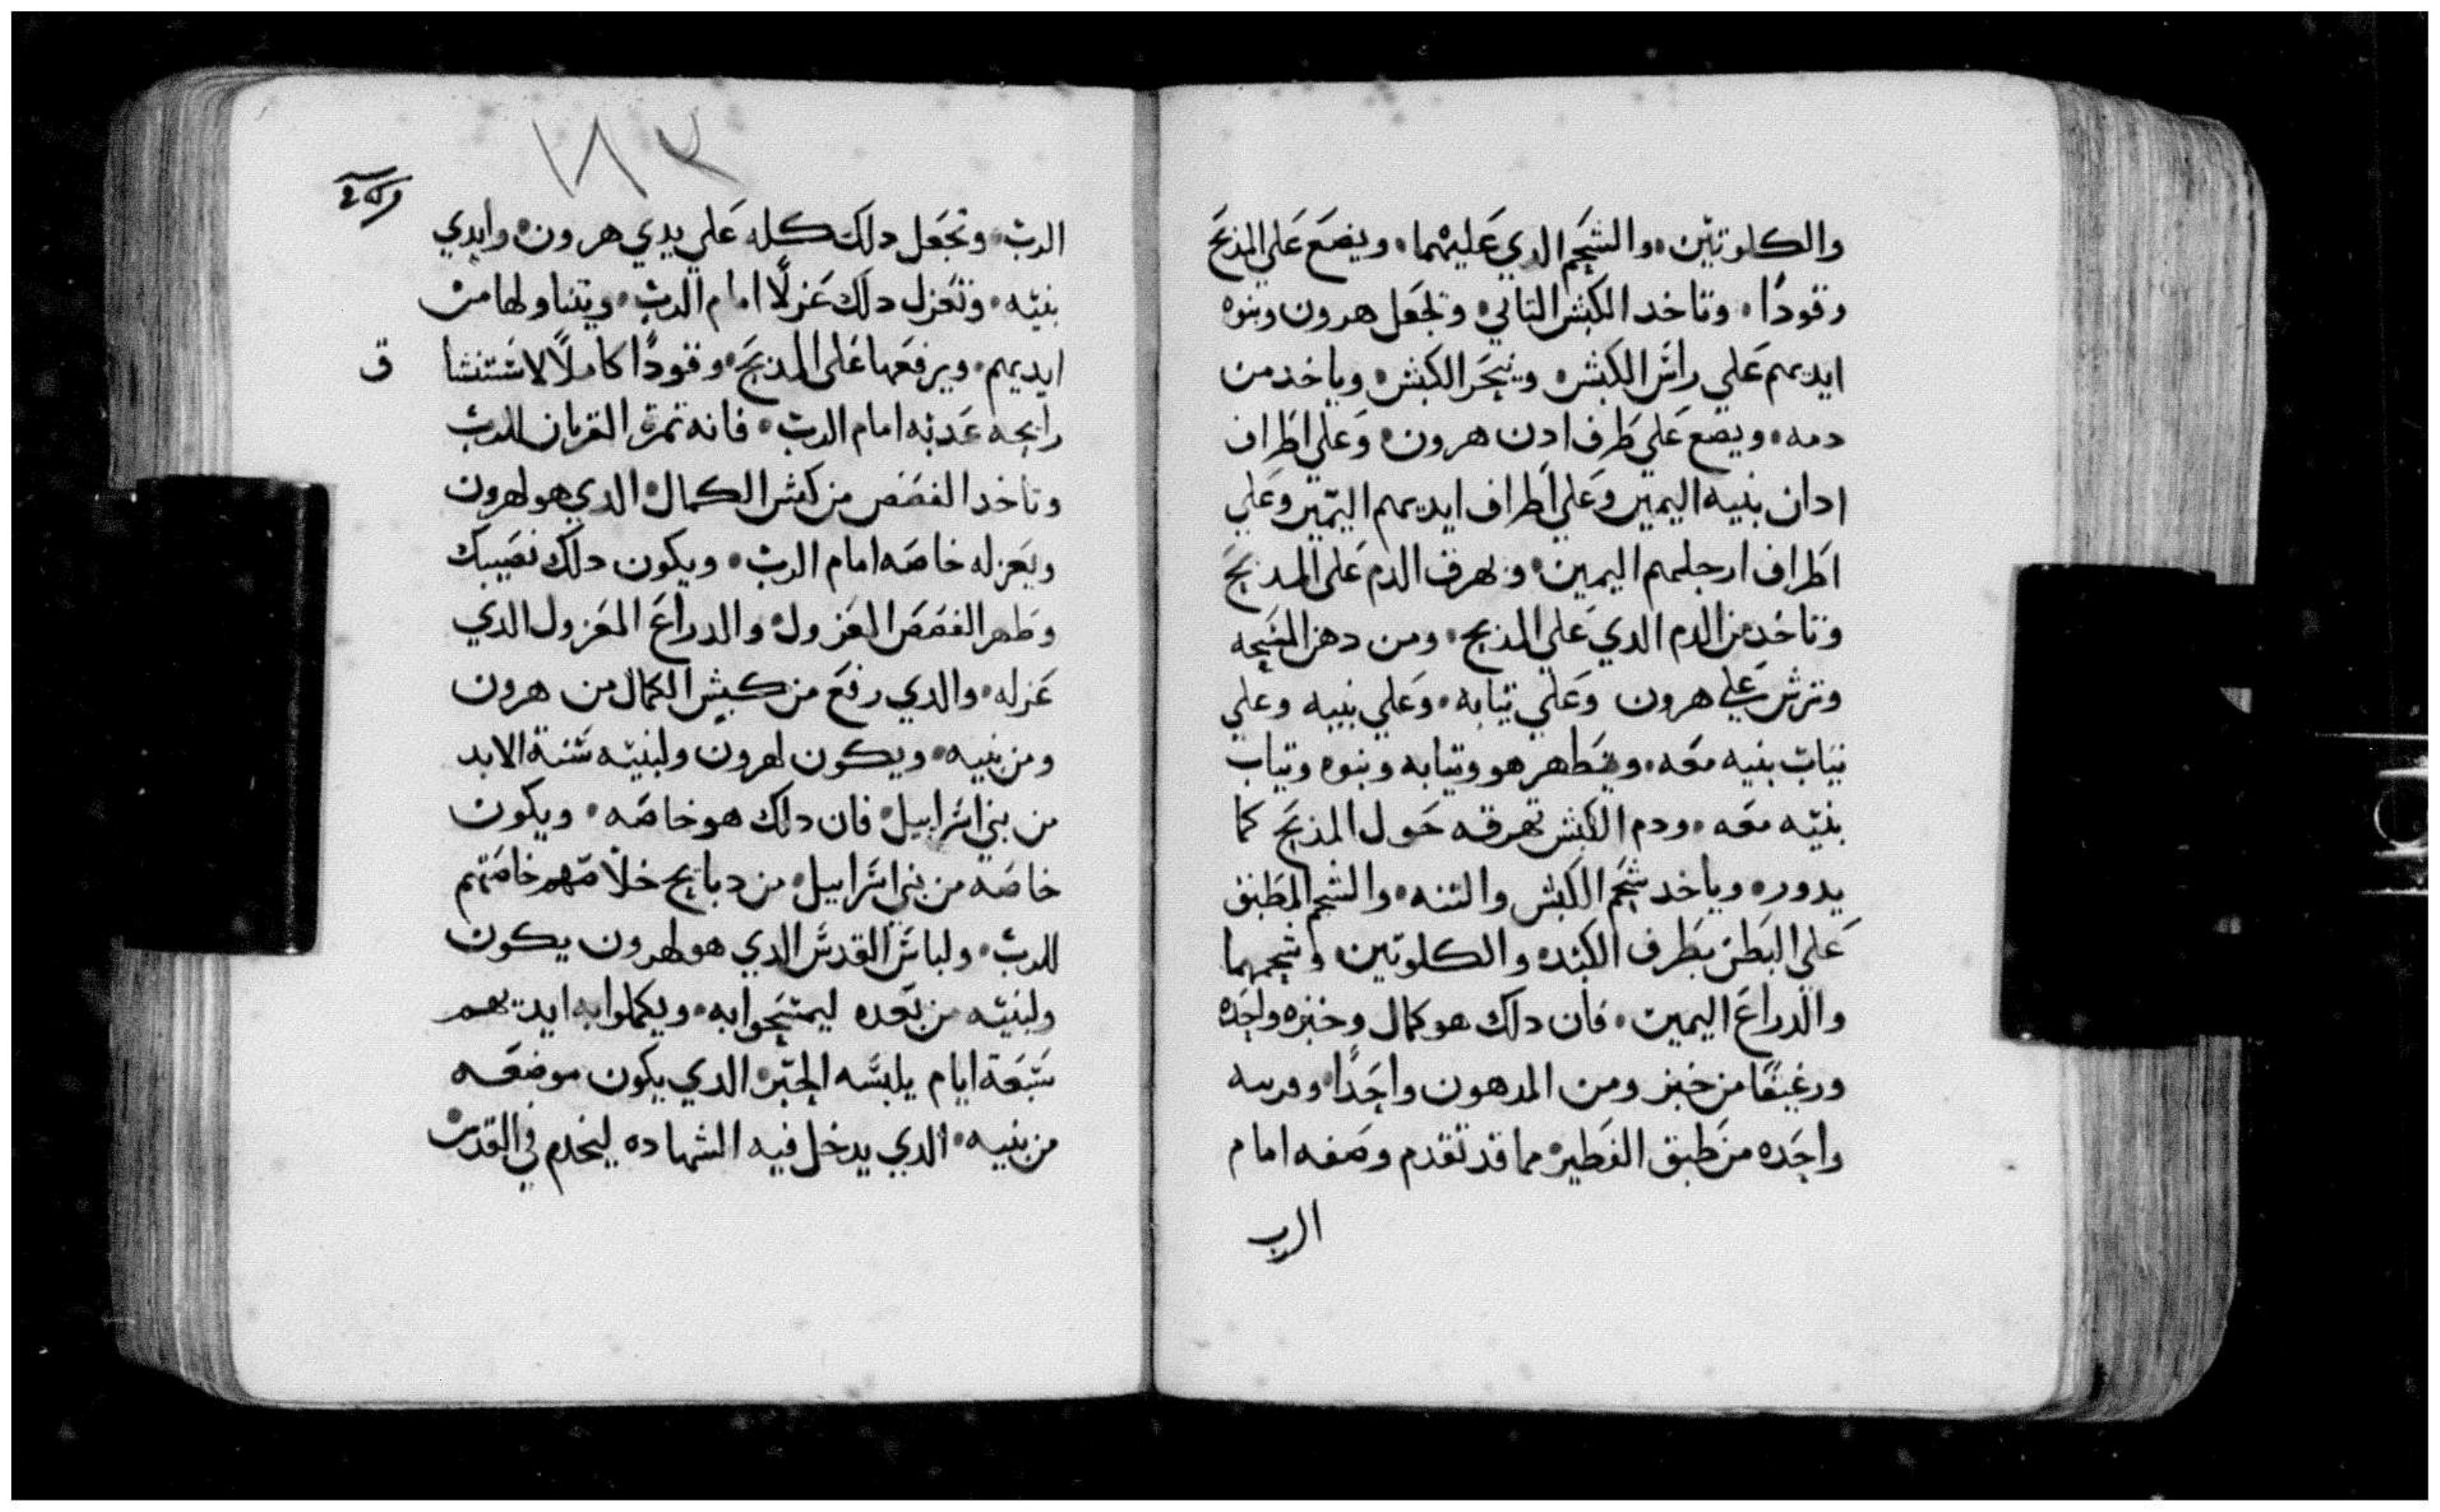 والكلوتين والشحم الدي عليهما ويضع علي المذبح
وقودًا وتاخد الكبش التاني وتجعل هرون وبنوه
ايديهم علي راس الكبش وينحر الكبش وياخد من
دمه ويضع علي طرف ادن هرون وعلي اطراف
ادان بنيه اليمين وعلي اطراف ايديهم اليمين وعلي
اطراف ارجلهم اليمين وتهرق الدم على المدبح
وتاخد من الدم الدي علي المذبح ومن دهن المسحه
وترش علي هرون وعلي تيابه وعلي بنيه وعلي
تياب بنيه معه ويتطهر هو وتيابه وبنوه وتياب
بنيه معه ودم الكبش تهرقه حول المذبح كما
يدور وياخد شحم الكبش والتنه والشحم المطبق
علي البطن بطرف الكبده والكلوتين وشحمهما
والدراع اليمين فان دلك هو كمال وخبزه واحده
ورغيفًا من خبز ومن المدهون واحدًا
واحده من طبق الفطير مما قد تقدم وصفه امام
الرب
١٨٢
الرب وتجعل دلك كله علي يدي هرون وايدي
بنيه وتعزل دلك عزلًا امام الرب ويتناولها من
ايديهم ويرفعها على المذبح وقودًا كاملًا لاستنشا
ق
رايحه عدبه امام الرب فانه تمرة القربان للرب
وتاخد القصص من كبش الكمال الدي هو لهرون
ويعزله خاصه امام الرب ويكون دلك نصيبك
وطهر القصص المعزول والدراع المعزول الدي
عزله والدي رفع من كبش الكمال من هرون
ومن بنيه ويكون لهرون ولبنيه سنة الابد
من بني اسراييل فان دلك هو خاصه ويكون
خاصه من بني اسراييل من دبايح خلاصهم خاصتهم
للرب ولباس القدس الدي هو لهرون يكون
ولبنيه من بعده ليمتسحوا به ويكملوا به ايديهم
سبعة ايام يلبسه الحبر الدي يكون موضعه
من بنيه الدي يدخل فيه الشهاده ليخدم في القدس